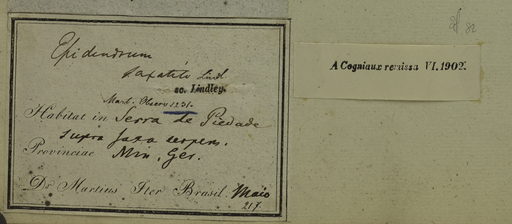 Epidendrum
saxatile Lindl
sc. Lindley.
Mart. Observ. 1231.
Habitat in Serra de Piedade
supra saxa serpens.
Provinciae Min. Ger.
Dr. Martius Iter Brasil. Maio
217.
A Cogniaux remissa VI. 1902.